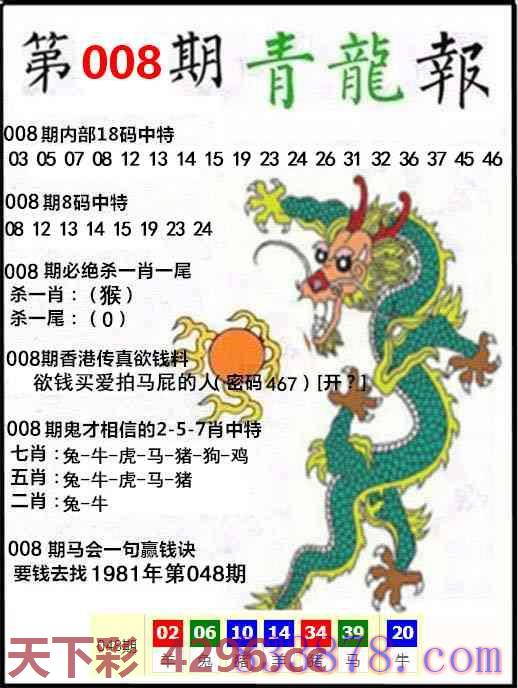 第008期青龍報
008期内部18码中特
03 05 07 08 12 13 14 15 19 23 24 26 31 32 36 37 45 46
008期8码中特
08 12 13 14 15 19 23 24
008 期必绝杀一肖一尾
杀一肖：（猴）
杀一尾：（0）
008期香港传真欲钱料
欲钱买爱拍马屁的人(密码467）[开？]
008期鬼才相信的2-5-7肖中特
七肖：兔-牛-虎-马-猪-狗-鸡
五肖：兔-牛-虎-马-猪
二肖：兔-牛
008 期马会一句赢钱诀
要钱去找1981年第048期
048期 02 06 10 14 34 39 20
羊 兔 猪 羊 猪 马 牛
天下彩 4296.cc
878.com